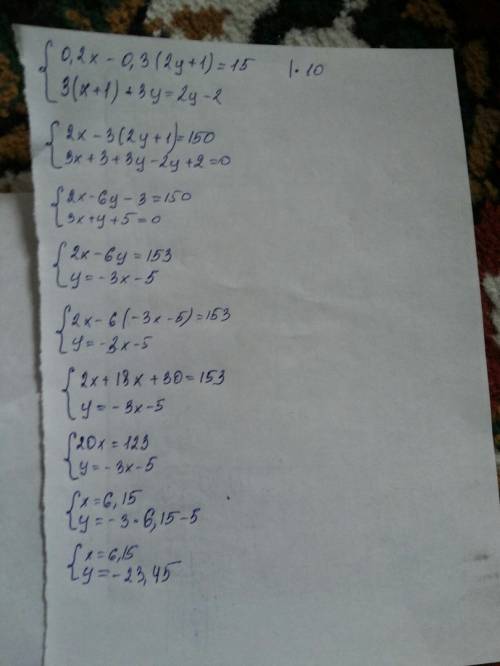 { 0,2x - 0,3(2y+1)=15 | · 10
3(x+1)+3y=2y-2
{ 2x-3(2y+1)=150
3x+3+3y-2y+2=0
{ 2x-6y-3=150
3x+y+5=0
{ 2x-6y=153
y=-3x-5
{ 2x-6(-3x-5)=153
y=-3x-5
{ 2x+18x+30=153
y=-3x-5
{ 20x=123
y=-3x-5
{ x=6,15
y=-3·6,15-5
{ x=6,15
y=-23,45